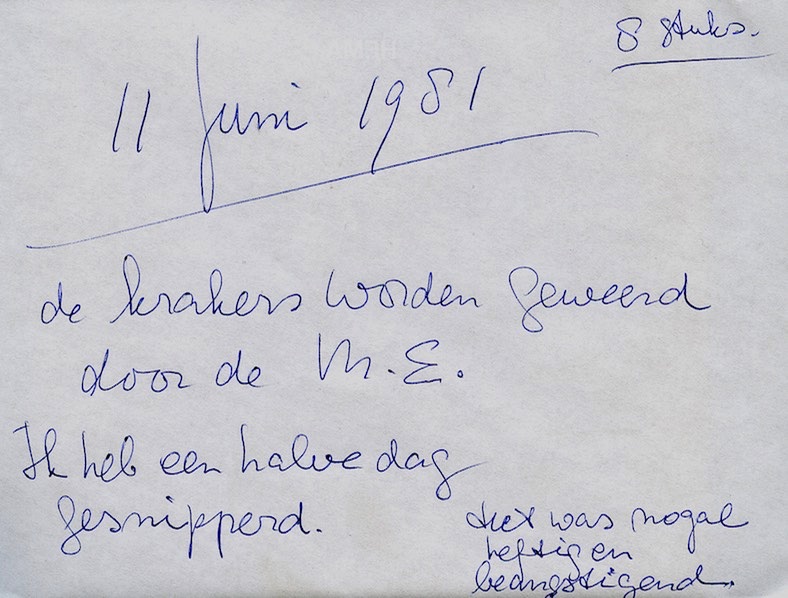 8 stuks.
11 Juni 1981
de krakers worden geweerd
door de M.E.
Ik heb een halve dag
gesnipperd.
Het was nogal
heftig en
beangstigend.